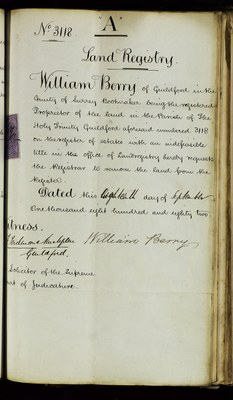 No. 3118
A
Land Registry.
William Berry of Guildford in the
County of Surrey Bootmaker being the registered
Proprietor of the land in the Parish of The
Holy Trinity Guildford aforesaid numbered 3118
on the register of estates with an indefeasible
title in the office of Land registry hereby requests
the Registrar to remove the land from the
Register.
Dated this eighth day of September
One thousand eight hundred and eighty two
itness.
William Berry
Guildford.
Solicitor of the Supreme
rt of Judicature.